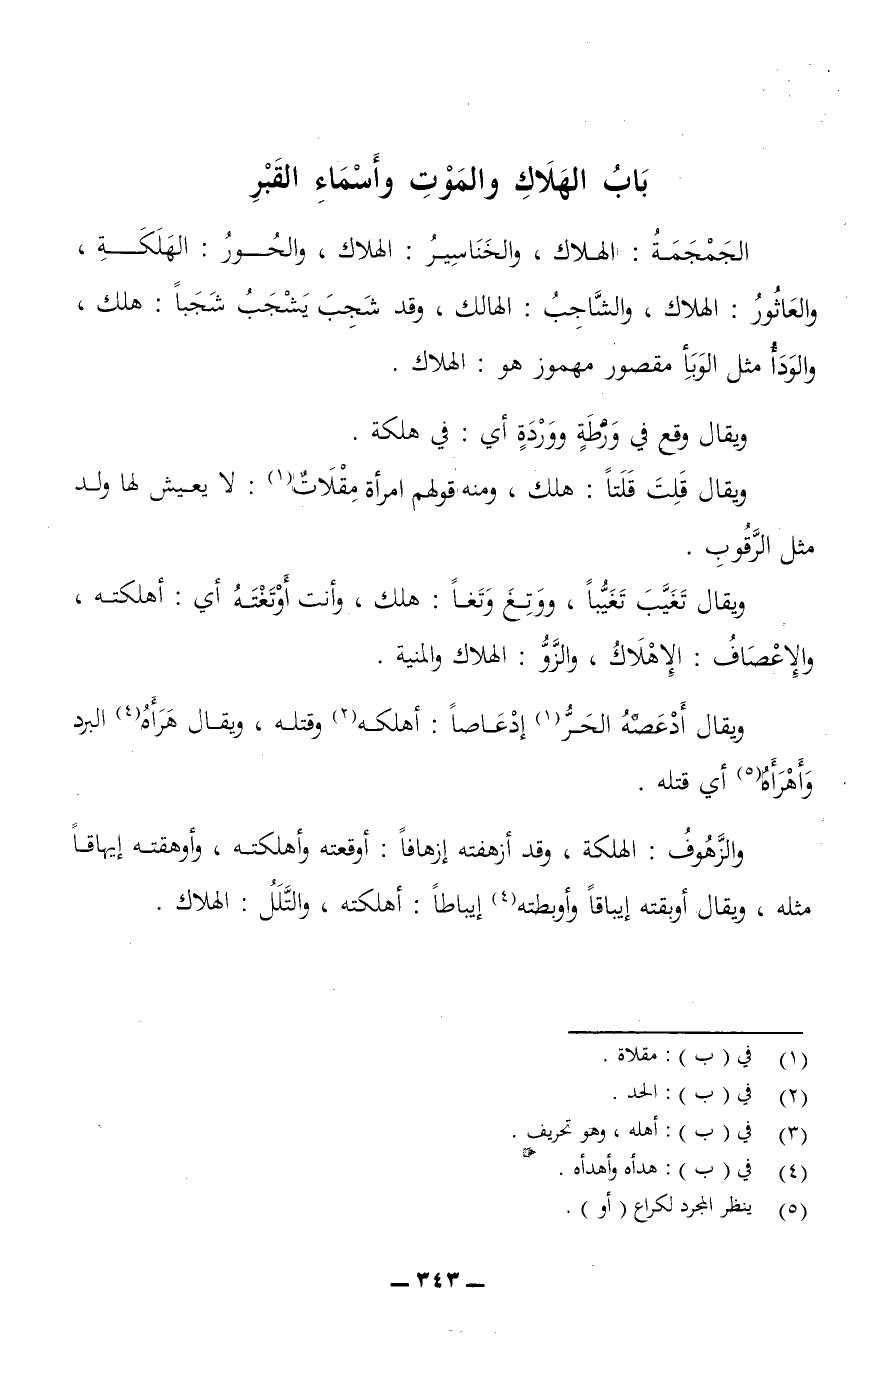 بَابُ الهَلَاكِ والمَوْتِ وأَسْمَاءِ القَبْرِ
الجَمْجَمَةُ : الهلاك ، والخَنَاسِيرُ : الهلاك ، والحُورُ : الهَلَكَةِ ،
والعَاثُورُ : الهلاك ، والشَّاجِبُ : الهالك ، وقد شَجِبَ يَشْجَبُ شَجَباً : هلك ،
والوَدَأُ مثل الوَبَأِ مقصور مهموز هو : الهلاك .
ويقال وقع في وَرْطَةٍ ووَرْدَةٍ أي : في هلكة .
ويقال قَلِتَ قَلَتاً : هلك ، ومنه قولهم امرأة مِقْلَاتٌ(١) : لا يعيش لها ولد
مثل الرَّقُوبِ .
ويقال تَغَيَّبَ تَغَيُّباً ، ووَتِغَ وَتَغاً : هلك ، وأنت أَوْتَغْتَهُ أي : أهلكته ،
والإِعْصَافُ : الإِهْلَاكُ ، والزَّوُّ : الهلاك والمنية .
ويقال أَدْعَصَهُ الحَرُّ(١) إدْعَاصاً : أهلكه(٢) وقتله ، ويقال هَرَأَهُ(٤) البرد
وَأَهْرَأَهُ(٥) أي قتله .
والزَّهُوفُ : الهلكة ، وقد أزهفته إزهافاً : أوقعته وأهلكته ، وأوهقته إيهاقاً
مثله ، ويقال أوبقته إيباقاً وأوبطته(٤) إيباطاً : أهلكته ، والتَّلَلُ : الهلاك .
(١) في ( ب ) : مقلاة .
(٢) في ( ب ) : الحد .
(٣) في ( ب ) : أهله ، وهو تحريف .
(٤) في ( ب ) : هدأه وأهدأه .
(٥) ينظر المجرد لكراع ( أو ) .
ــ ٣٤٣ ــ